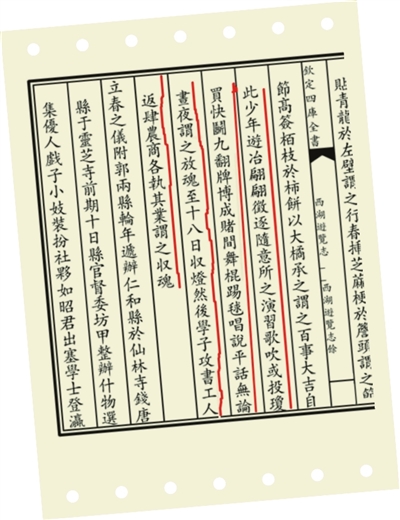 貼青龍於左壁謂之行春挿芝麻梗於簷頭謂之節
欽定四庫全書
西湖遊覽志
西湖遊覽志餘
節高簽栢枝於柿餅以大橘承之謂之百事大吉自
此少年遊冶翩翩徵逐隨意所之演習歌吹或投瓊
買快鬭九翻牌博成賭間舞棍踢毬唱說平話無論
晝夜謂之放魂至十八日収燈然後學子攻書工人
返肆農商各執其業謂之収魂
立春之儀附郭兩縣輪年遞辦仁和縣於仙林寺錢唐
縣于靈芝寺前期十日縣官督委坊甲整辦什物選
集優人戲子小妓裝扮社夥如昭君出塞學士登瀛